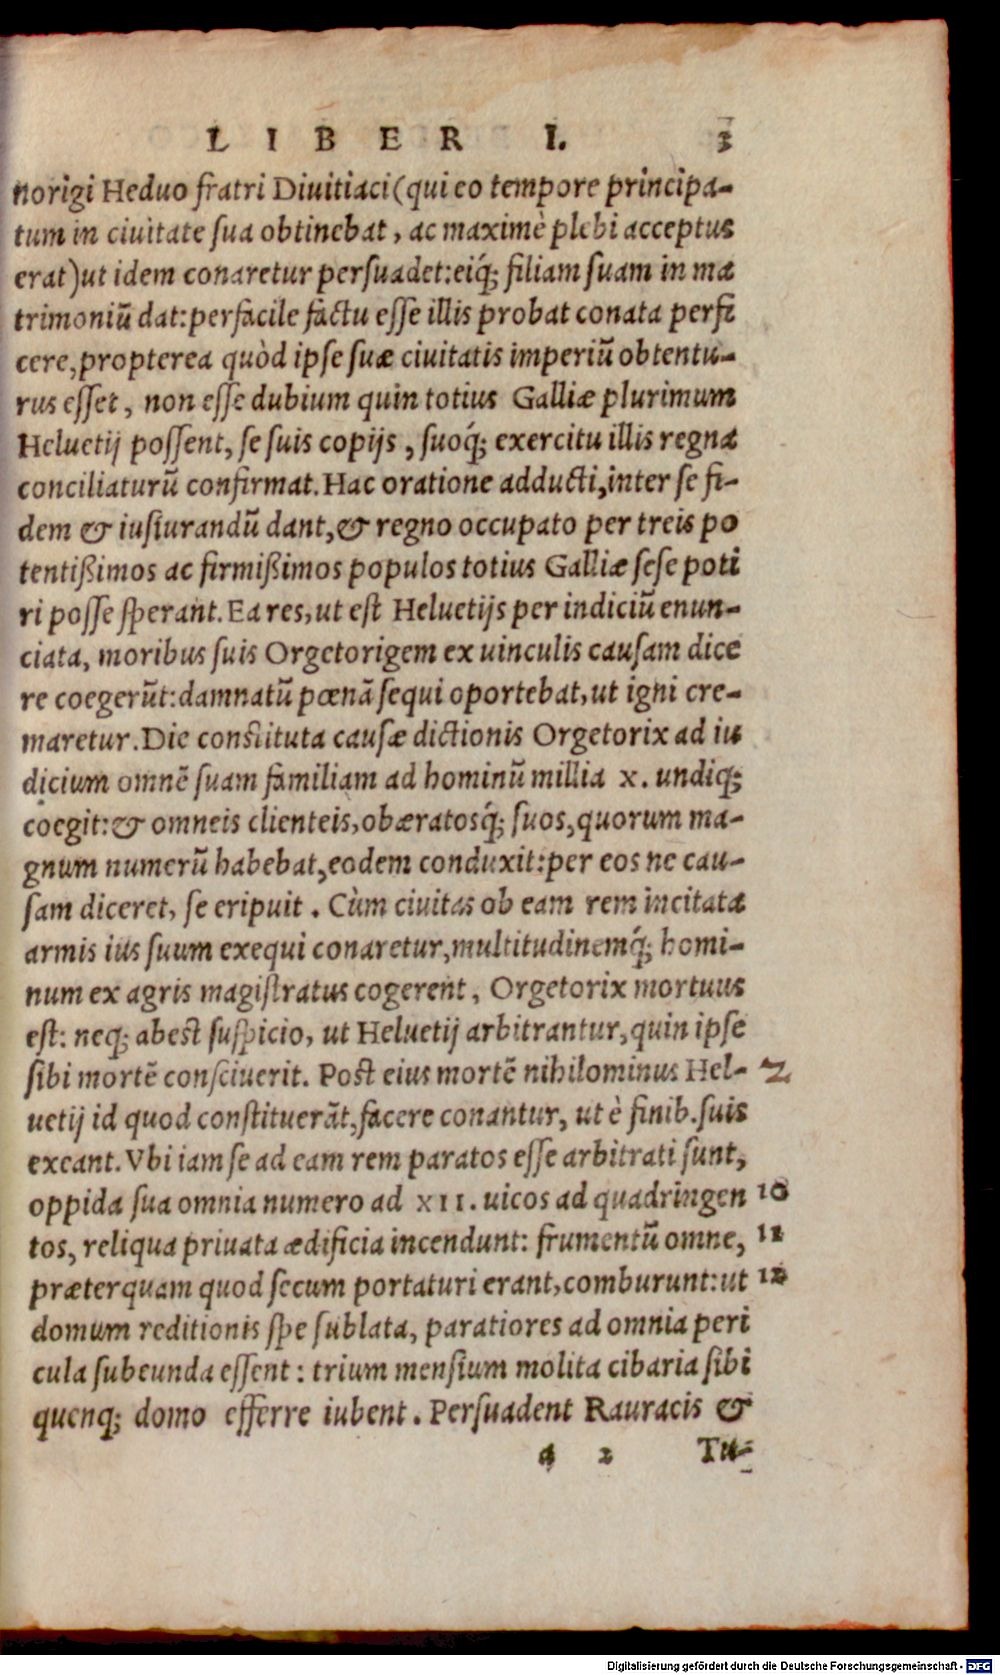 LIBER I. 3
norigi Heduo fratri Diuitiaci (qui eo tempore principa-
tum in ciuitate sua obtinebat, ac maximè plebi acceptus
erat) ut idem conaretur persuadet: eiq́; filiam suam in ma
trimoniũ dat: perfacile factu esse illis probat conata perfi
cere, propterea quòd ipse suæ ciuitatis imperiũ obtentu-
rus esset, non esse dubium quin totius Galliæ plurimum
Heluetij possent, se suis copijs, suoq́; exercitu illis regna
conciliaturũ confirmat. Hac oratione adducti, inter se fi-
dem & iusiurandũ dant, & regno occupato per treis po
tentißimos ac firmißimos populos totius Galliæ sese poti
ri posse sperant. Ea res, ut est Heluetijs per indiciũ enun-
ciata, moribus suis Orgetorigem ex uinculis causam dice
re coegerũt: damnatũ pœnã sequi oportebat, ut igni cre-
maretur. Die constituta causæ dictionis Orgetorix ad iu
dicium omnẽ suam familiam ad hominũ millia x. undiq;
coegit: & omneis clienteis, obæratosq́; suos, quorum ma-
gnum numerũ habebat, eodem conduxit: per eos ne cau-
sam diceret, se eripuit. Cùm ciuitas ob eam rem incitata
armis ius suum exequi conaretur, multitudinemq́; homi-
num ex agris magistratus cogerent, Orgetorix mortuus
est: neq; abest suspicio, ut Heluetij arbitrantur, quin ipse
sibi mortẽ consciuerit. Post eius mortẽ nihilominus Hel- 2
uetij id quod constituerãt, facere conantur, ut è finib. suis
exeant. Vbi iam se ad eam rem paratos esse arbitrati sunt,
oppida sua omnia numero ad XII. uicos ad quadringen 10
tos, reliqua priuata ædificia incendunt: frumentũ omne, 11
præterquam quod secum portaturi erant, comburunt: ut 12
domum reditionis spe sublata, paratiores ad omnia peri
cula subeunda essent: trium mensium molita cibaria sibi
quenq; domo efferre iubent. Persuadent Rauracis &
a 2 Tu-
Digitalisierung gefördert durch die Deutsche Forschungsgemeinschaft - DFG